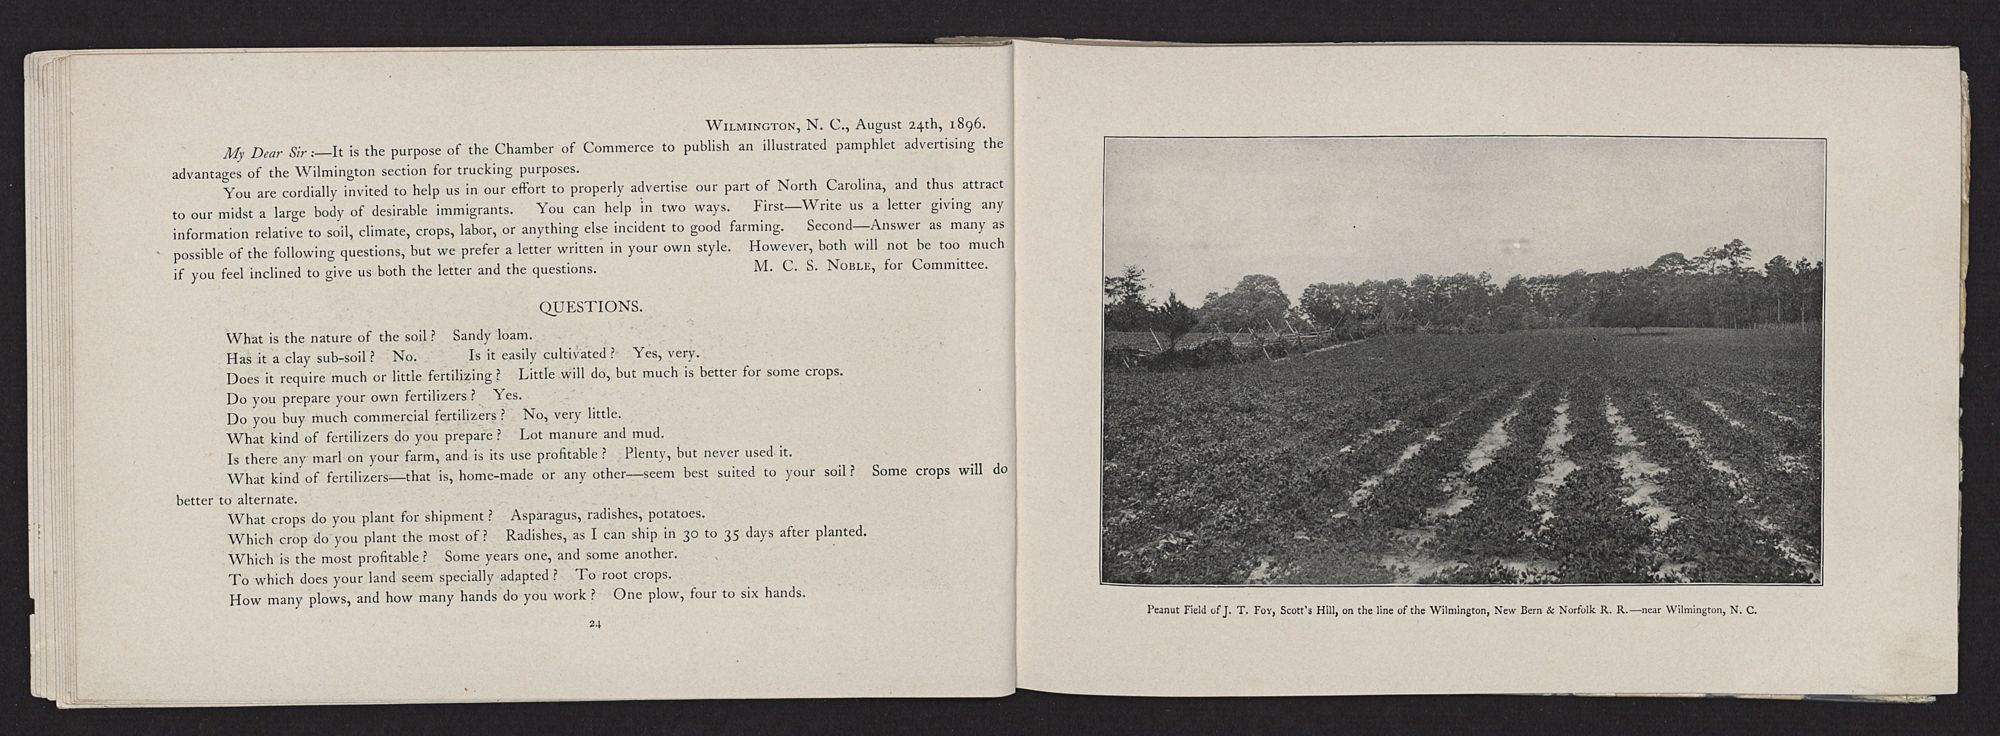 Wilmington, N. C., August 24th, 1896.
My Dear Sir :—It is the purpose of the Chamber of Commerce to publish an illustrated pamphlet advertising the
advantages of the Wilmington section for trucking purposes.
You are cordially invited to help us in our effort to properly advertise our part of North Carolina, and thus attract
to our midst a large body of desirable immigrants. You can help in two ways. First—Write us a letter giving any
information relative to soil, climate, crops, labor, or anything else incident to good farming. Second—Answer as many as
possible of the following questions, but we prefer a letter written in your own style. However, both will not be too much
if you feel inclined to give us both the letter and the questions. M. C. S. Noble, for Committee.
QUESTIONS.
What is the nature of the soil ? Sandy loam.
Has it a clay sub-soil ? No. Is it easily cultivated ? Yes, very.
Does it require much or little fertilizing ? Little will do, but much is better for some crops.
Do you prepare your own fertilizers ? Yes.
Do you buy much commercial fertilizers ? No, very little.
What kind of fertilizers do you prepare ? Lot manure and mud.
Is there any marl on your farm, and is its use profitable ? Plenty, but never used it.
What kind of fertilizers—that is, home-made or any other—seem best suited to your soil ? Some crops will do
better to alternate.
What crops do you plant for shipment ? Asparagus, radishes, potatoes.
Which crop do you plant the most of ? Radishes, as I can ship in 30 to 35 days after planted.
Which is the most profitable ? Some years one, and some another.
To which does your land seem specially adapted ? To root crops.
How many plows, and how many hands do you work ? One plow, four to six hands.
24
Peanut Field of J. T. Foy, Scott's Hill, on the line of the Wilmington, New Bern & Norfolk R. R.—near Wilmington, N. C.